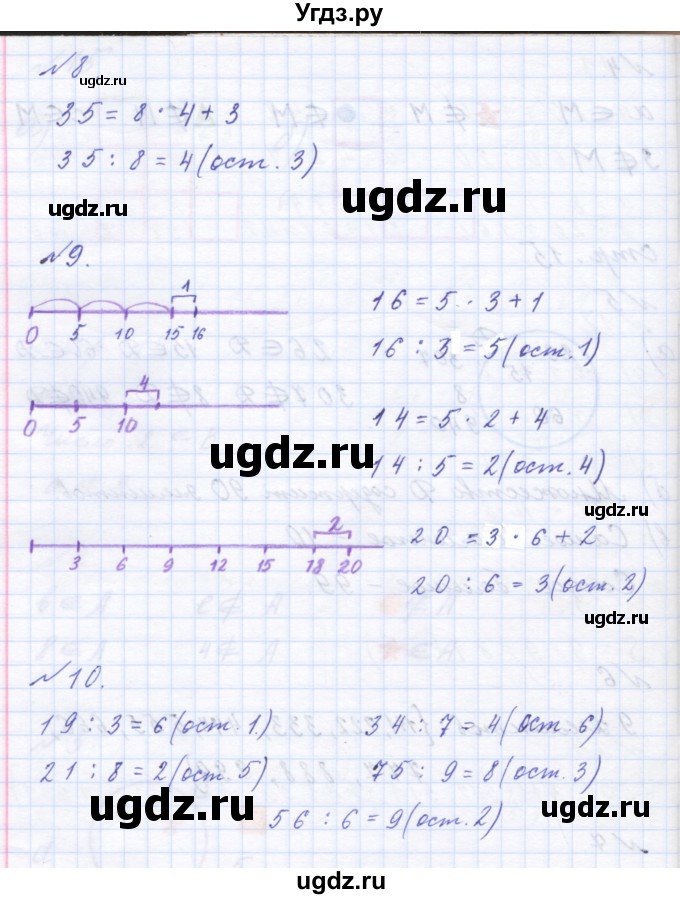 Угдз.ру
№8
ugdz.ru
35 = 8 · 4 + 3
35 : 8 = 4 (ост. 3)
ugdz.ru ugdz.ru ugdz.ru
№9.
1
0 5 10 15 16
16 = 5 · 3 + 1
16 : 3 = 5 (ост. 1)
4
0 5 10
14 = 5 · 2 + 4
ugdz.ru ugdz.ru
14 : 5 = 2 (ост. 4)
2
3 6 9 12 15 18 20
20 = 3 · 6 + 2
20 : 6 = 3 (ост. 2)
ugdz.ru
№10.
19 : 3 = 6 (ост. 1) 34 : 7 = 4 (ост. 6)
21 : 8 = 2 (ост. 5) 75 : 9 = 8 (ост. 3)
ugdz.ru ugdz.ru
56 : 6 = 9 (ост. 2)
ugdz.ru